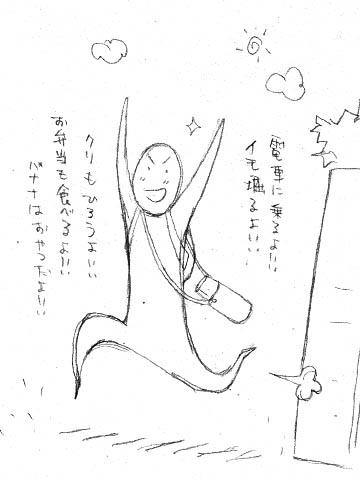 電車に乗るよ!!
イモ堀るよ!!
クリもひろうよ!!
お弁当も食べるよ!!
バナナはおやつだよ!!